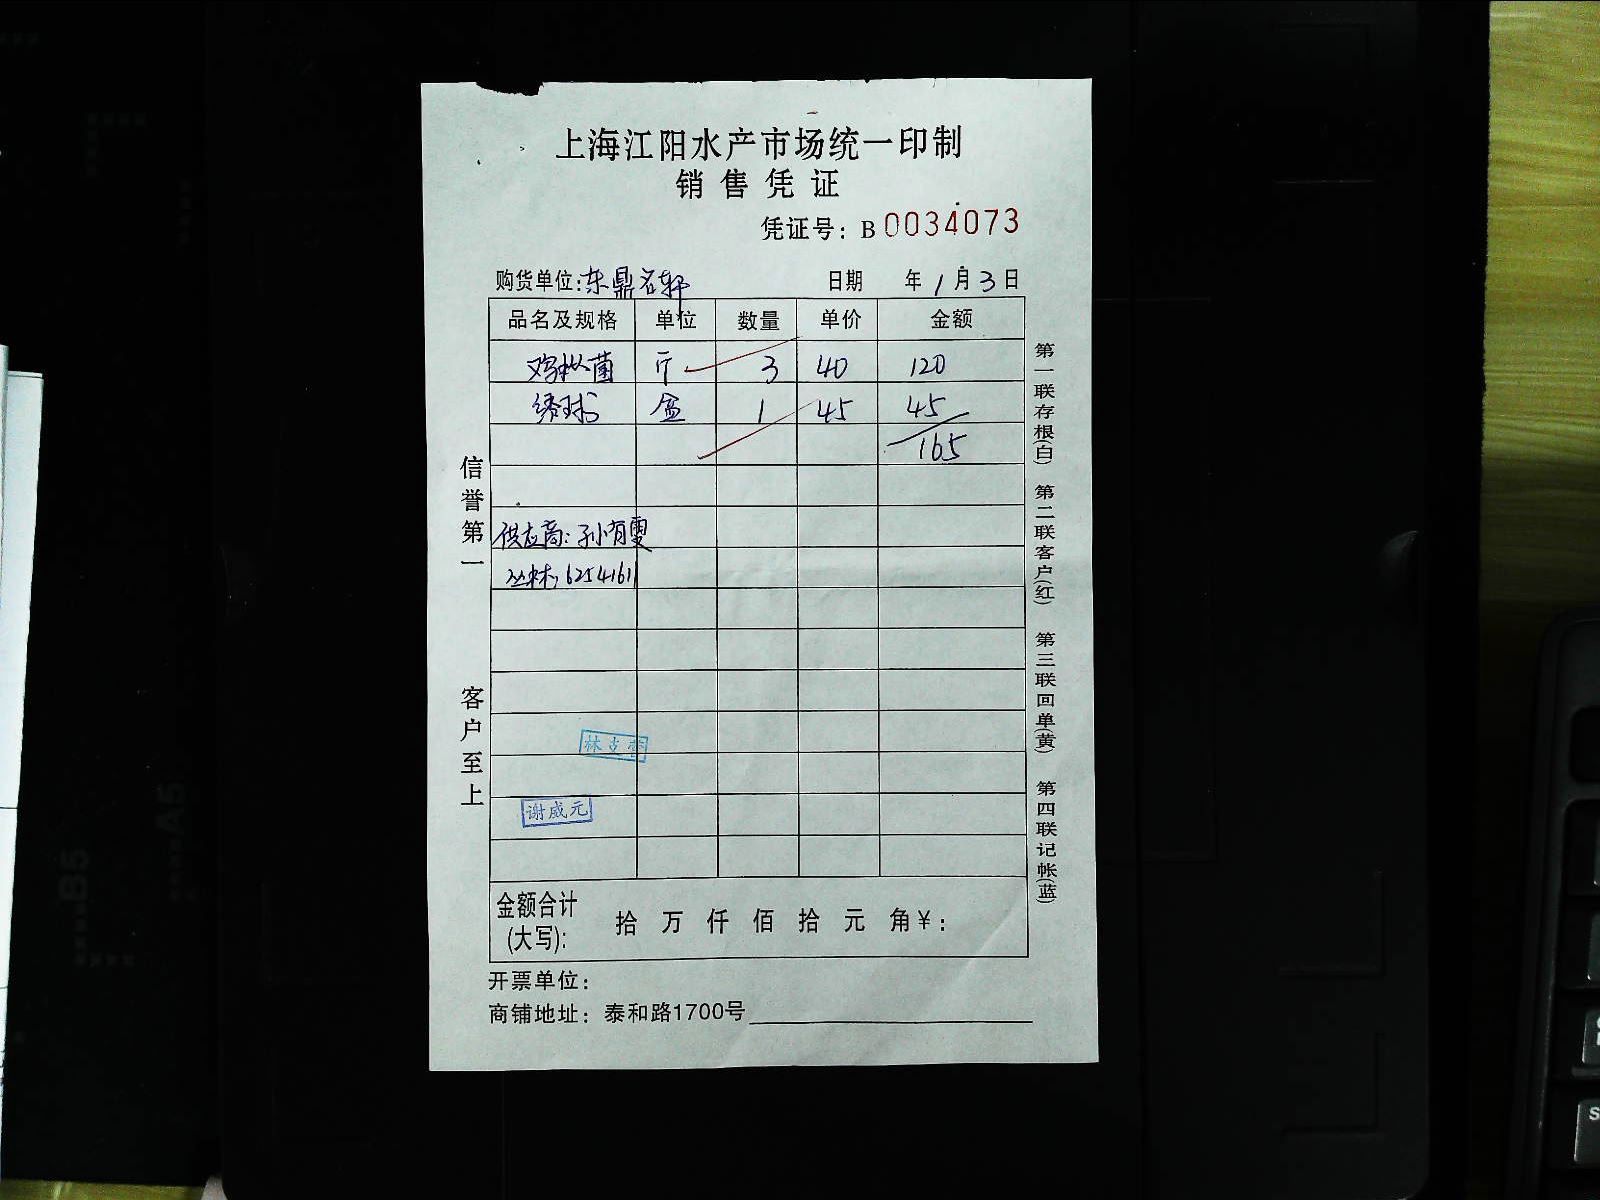 上海江阳水产市场统一印制
销售凭证
凭证号：B 0034073
购货单位：东鼎名轩 日期 年 1 月 3 日
品名及规格 单位 数量 单价 金额
鸡枞菌 斤 3 40 120
绣球 盒 1 45 45
165
供应商：孙有雯
丛林，62541611
林支
谢威元
金额合计(大写)： 拾 万 仟 佰 拾 元 角 ¥：
开票单位：
商铺地址：泰和路1700号
信誉第一
客户至上
第一联存根(白) 第二联客户(红) 第三联回单(黄) 第四联记帐(蓝)
B5
A5
S